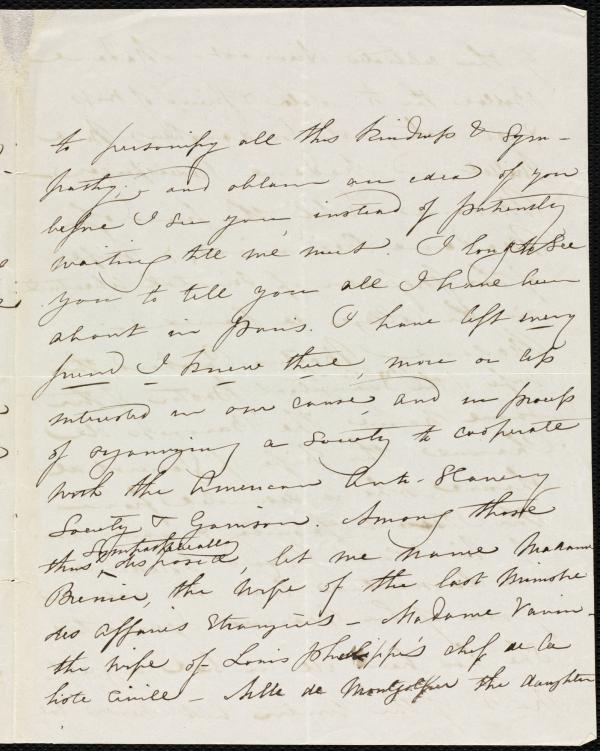 to personify all this kindness & sym-
pathy, - and obtain an idea of you
before I see you, instead of patiently
waiting till we meet. I long to see
you to tell you all I have been
about in Paris. I have left every
friend I knew there, more or less
interested in our cause, and in process
of organizing a Society to cooperate
with the American Anti-Slavery
Society & Garrison. Among those
thus sympathetically disposed, let me name Madame
Brenier, the wife of the last Ministre
des affaires Etrangères - Madame Vavin -
the wife of Louis Philippe's chef de la
liste civile - Mlle de Montgolfier the daughter